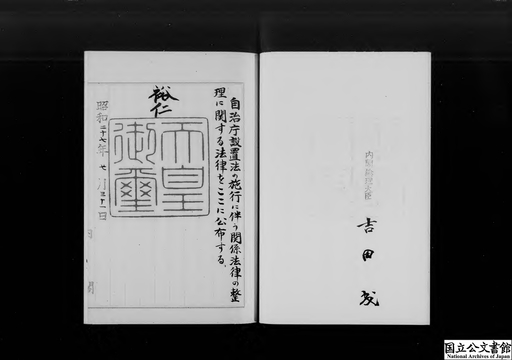 自治庁設置法の施行に伴う関係法律の整
理に関する法律をここに公布する。
裕仁
天皇
御璽
昭和二十七年七月三十一日
内閣総理大臣
吉田茂
国立公文書館
National Archives of Japan